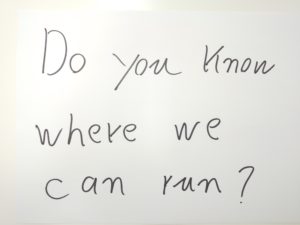 Do you know
where we
can run?